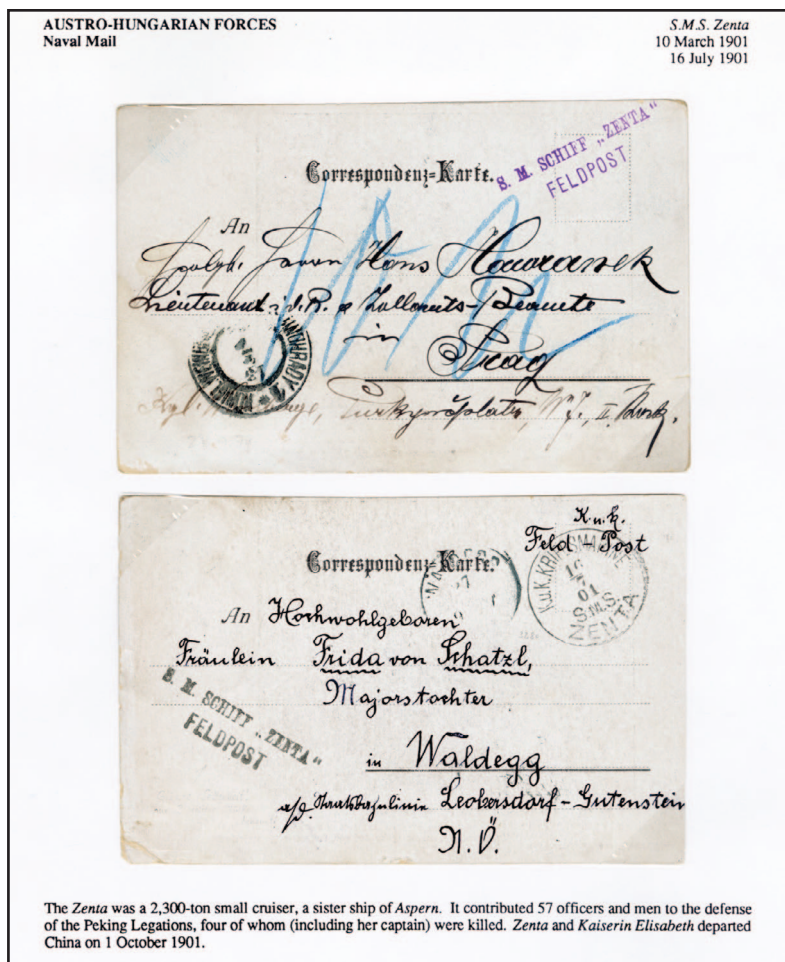 AUSTRO-HUNGARIAN FORCES
Naval Mail
S.M.S. Zenta
10 March 1901
16 July 1901
S. M. SCHIFF „ZENTA"
FELDPOST
Correspondenz-Karte.
An
Herrn Hans
Lieutenant i.d.R. Zollamts-Beamte
in
Prag
K.u.K.
Feld-Post
Correspondenz-Karte.
K.u.K. KRIEGSMARINE
16
7
01
S.M.S.
ZENTA
An Hochwohlgeboren
Fräulein Frida von Schatzl,
Majorstochter
S. M. SCHIFF „ZENTA"
FELDPOST
in Waldegg
a/d. Staatsbahnlinie Leobersdorf-Gutenstein
N.Ö.
The Zenta was a 2,300-ton small cruiser, a sister ship of Aspern. It contributed 57 officers and men to the defense
of the Peking Legations, four of whom (including her captain) were killed. Zenta and Kaiserin Elisabeth departed
China on 1 October 1901.